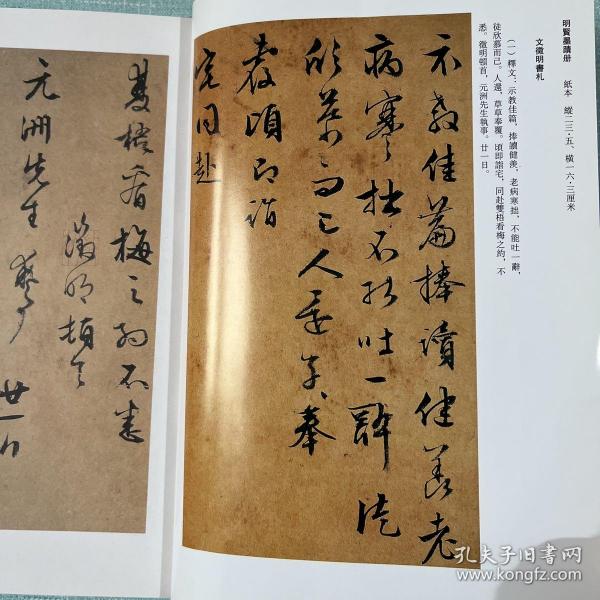 明賢墨蹟册　紙本　縱二三·五、橫一六·三厘米
文徵明書札
（一）釋文：示教佳篇，捧讀健羨，老病寒拙，不能吐一辭，
徒欣慕而已。人還，草草奉覆。頃即詣宅，同赴雙梧看梅之約，不
悉。徵明頓首，元洲先生執事。廿一日。
示教佳篇捧讀健羨老
病寒拙不能吐一辭徒
欣慕而已人還草草奉
覆頃即詣
宅同赴
雙梧看梅之約不悉
徵明頓首
元洲先生執事 廿一日
孔夫子旧书网
www.kongfz.com